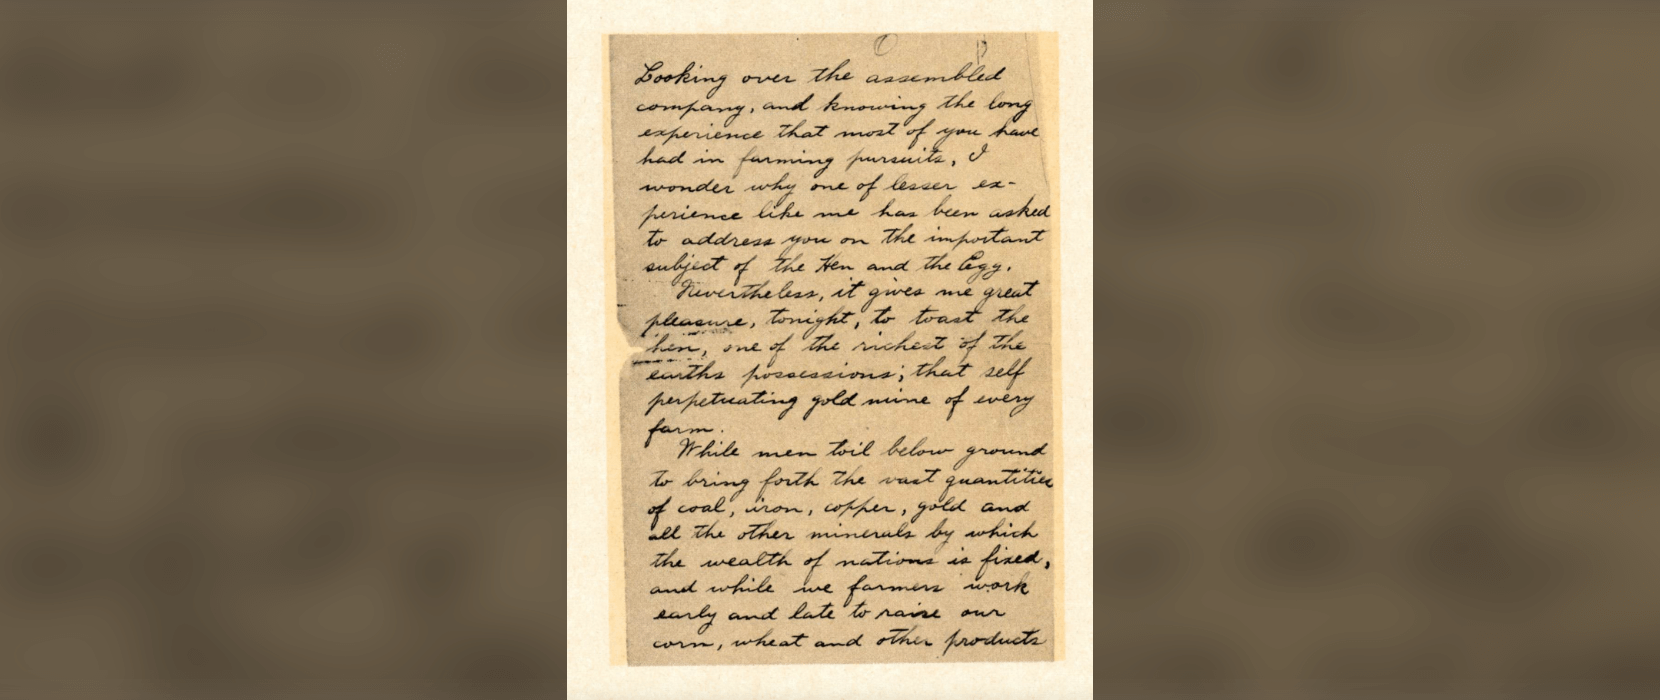 Looking over the assembled
company, and knowing the long
experience that most of you have
had in farming pursuits, I
wonder why one of lesser ex-
perience like me has been asked
to address you on the important
subject of the Hen and the Egg.
Nevertheless, it gives me great
pleasure, tonight, to toast the
hen, one of the richest of the
earths possessions; that self
perpetuating gold mine of every
farm.
While men toil below ground
to bring forth the vast quantities
of coal, iron, copper, gold and
all the other minerals by which
the wealth of nations is fixed,
and while we farmers work
early and late to raise our
corn, wheat and other products